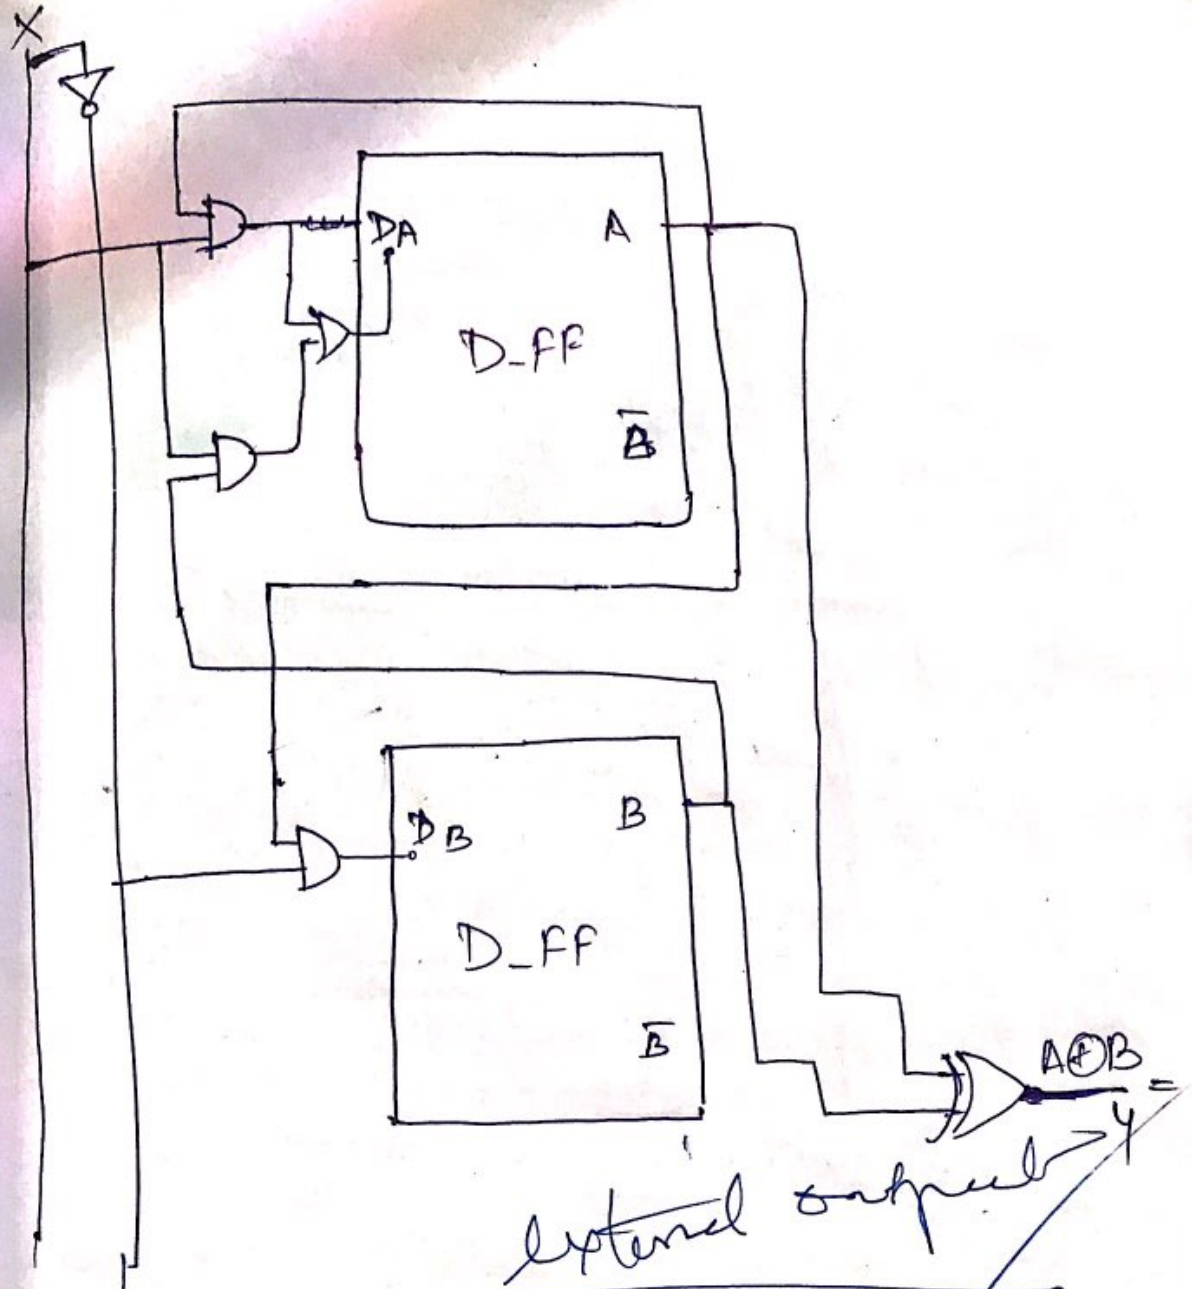 X
D_A A
D_FF
A̅
D_B B
D_FF
B̅
A⊕B =
y
external output